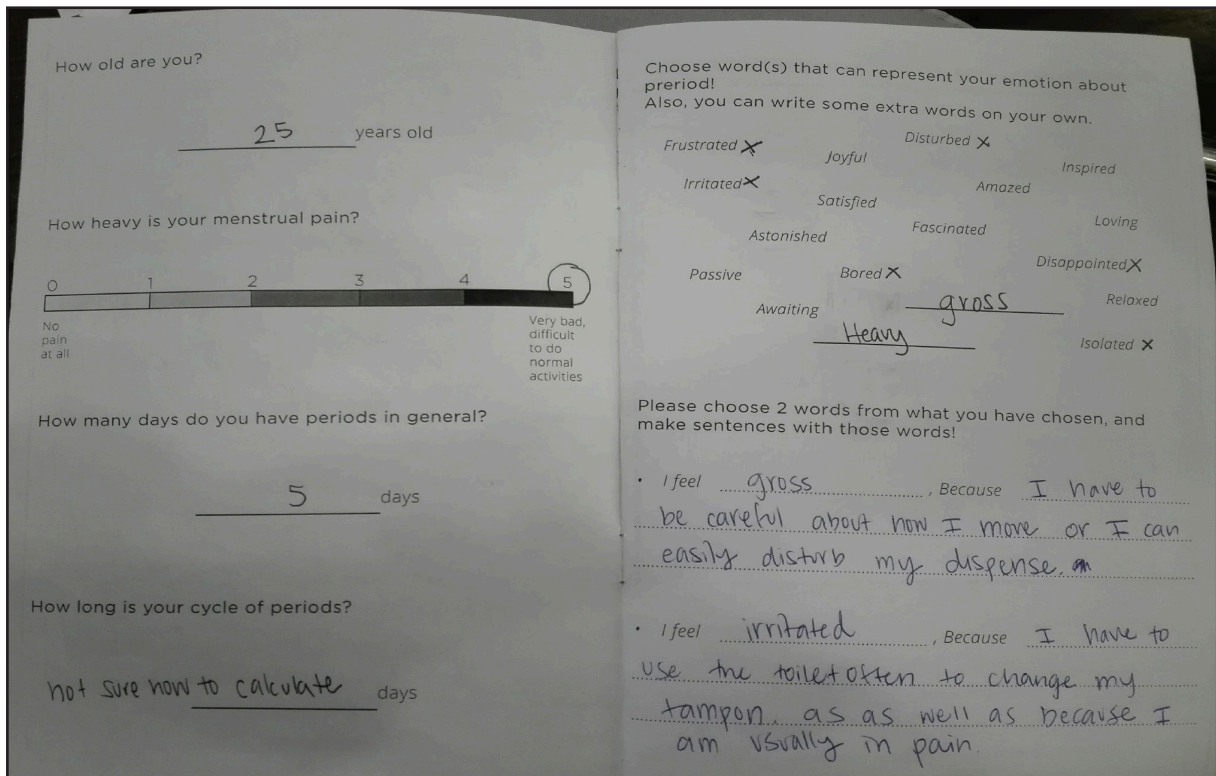 How old are you?
25 years old
How heavy is your menstrual pain?
0 1 2 3 4 5
No
pain
at all
Very bad,
difficult
to do
normal
activities
How many days do you have periods in general?
5 days
How long is your cycle of periods?
not sure how to calculate days
Choose word(s) that can represent your emotion about
preriod!
Also, you can write some extra words on your own.
Frustrated X Joyful Disturbed X Inspired
Irritated X Satisfied Amazed
Astonished Fascinated Loving
Passive Bored X Disappointed X
Awaiting gross Relaxed
Heavy Isolated X
Please choose 2 words from what you have chosen, and
make sentences with those words!
• I feel gross , Because I have to
be careful about how I move or I can
easily disturb my dispense.
• I feel irritated , Because I have to
use the toilet often to change my
tampon. as as well as because I
am usually in pain.